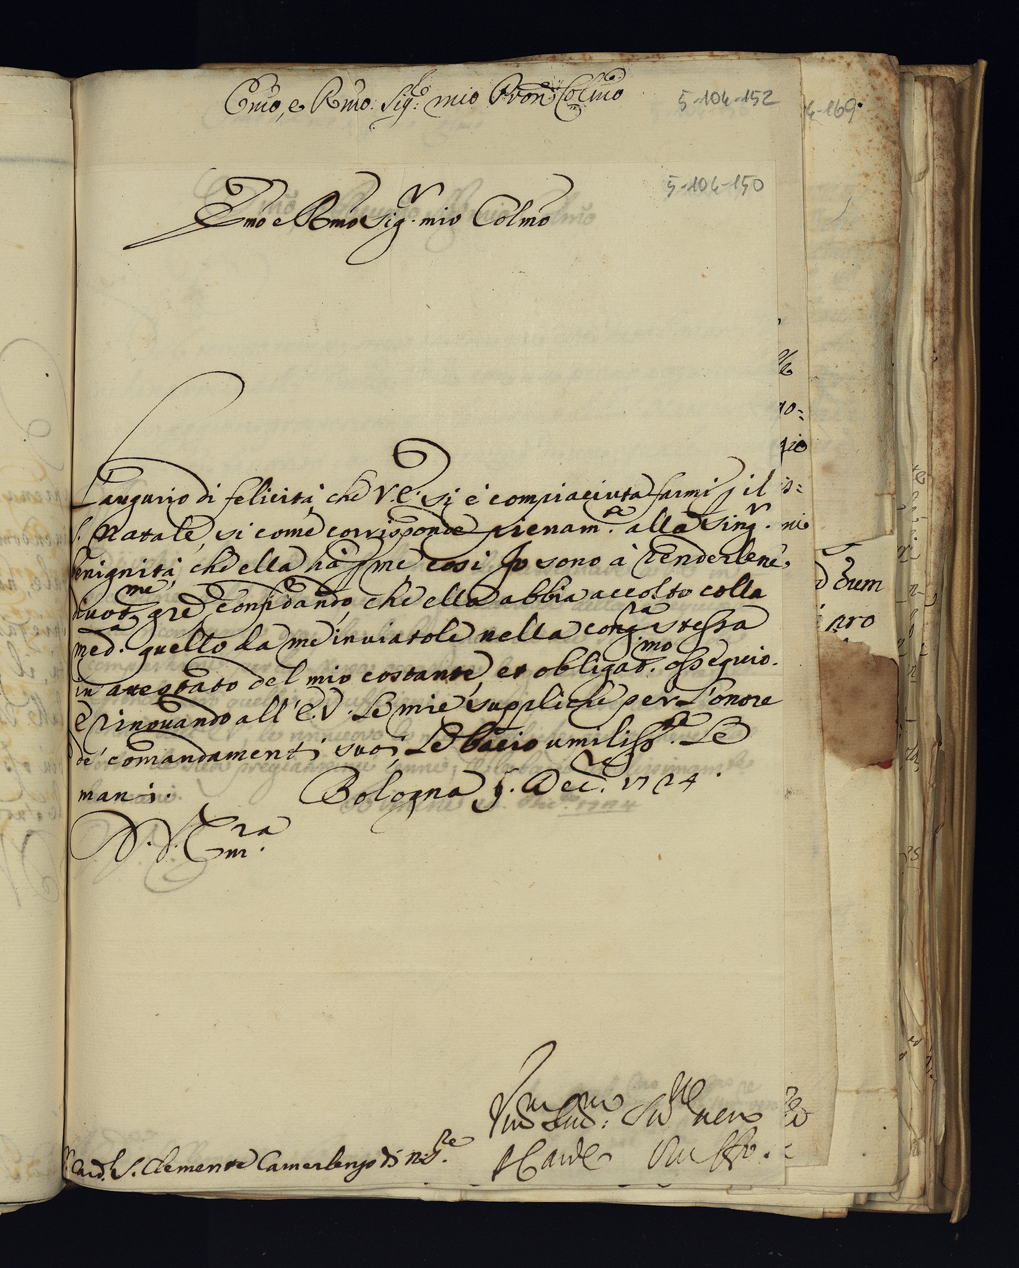 Emo, e Rmo. Sigre mio Pron Colmo
5-104-152
4-169.
5-104-150
Emo e Rmo Sigr. mio Colmo
L'augurio di felicità, che V.E. si è compiaciuta farmi p il
S. Natale, si come corrisponde pienamte. alla singr.
nignità, che ella hà p me così Io sono à renderlene
divotme gre confidando, che ella abbia accolto colla
meda. quello da me inviatole nella conga stessa
in attestato del mio costante, et obligatmo. ossequio.
E rinovando all'E.V. Le mie suppliche per L'onore
de' comandamenti suoi Le bacio umilisste. Le
mani. Bologna 9. Decre. 1724.
D. V. Emra.
dum
pro
Sre. Card. S. Clemente Camerlengo di Nre.
Vmo Dmo: Sre vero
Il Carde Ruffo.